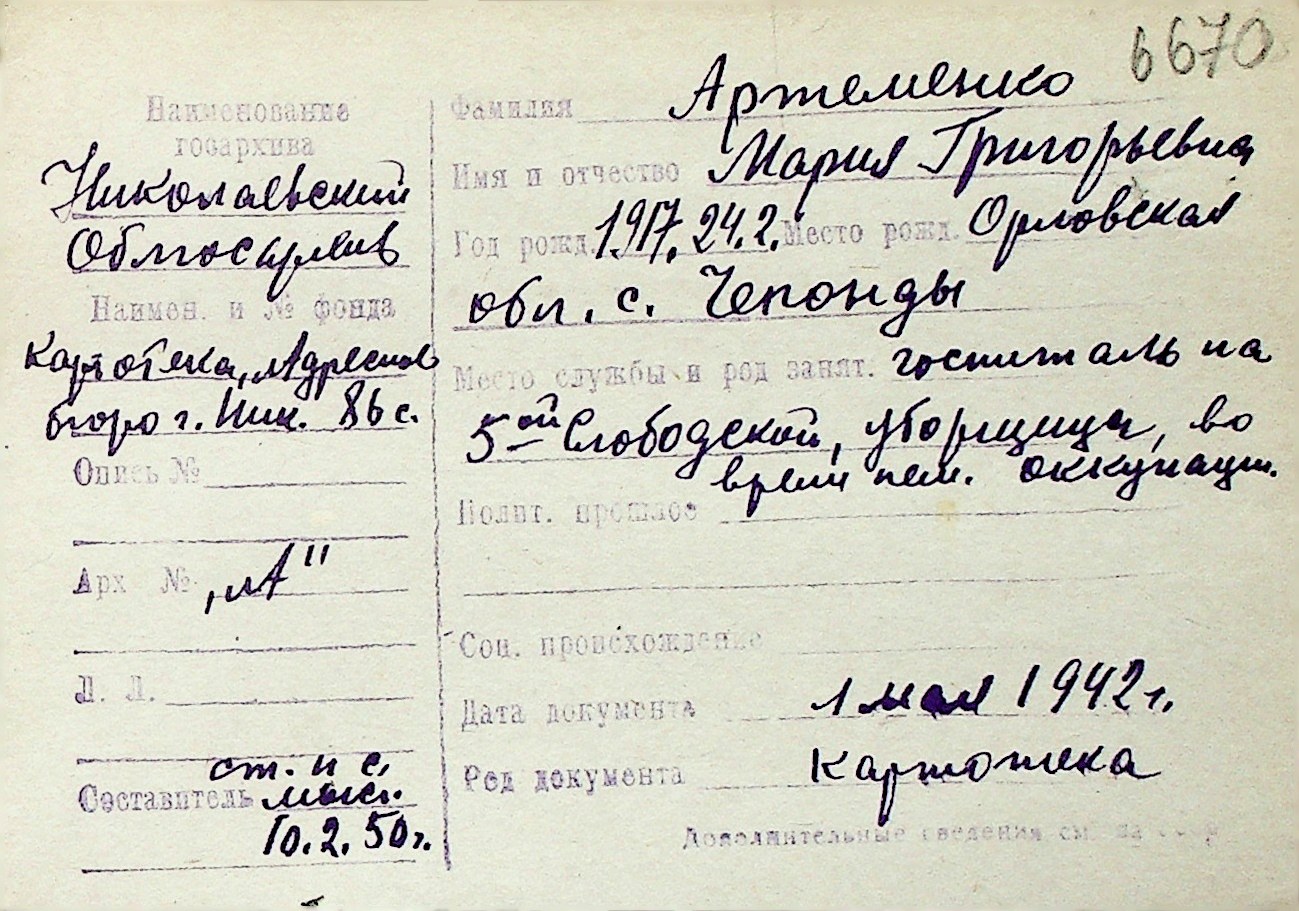 6670
Наименование
госархива
Николаевский
Облгосархив
Наимен. и № фонда
Картотека, Адресное
бюро г. Ник. 86 с.
Опись №
Арх №. „А"
Л. Л.
ст. н с.
Составитель
10.2.50г.
Фамилия Артеменко
Имя и отчество Мария Григорьевна
Год рожд. 1917.24.2. Место рожд. Орловская
обл. с. Чепонды
Место службы и род занят. госпиталь на
5-ой Слободской, уборщица, во
время нем. оккупации.
Полит. прошлое
Соц. происхождение
Дата документа 1 мая 1942г.
Род документа Картотека
Дополнительные сведения см. на